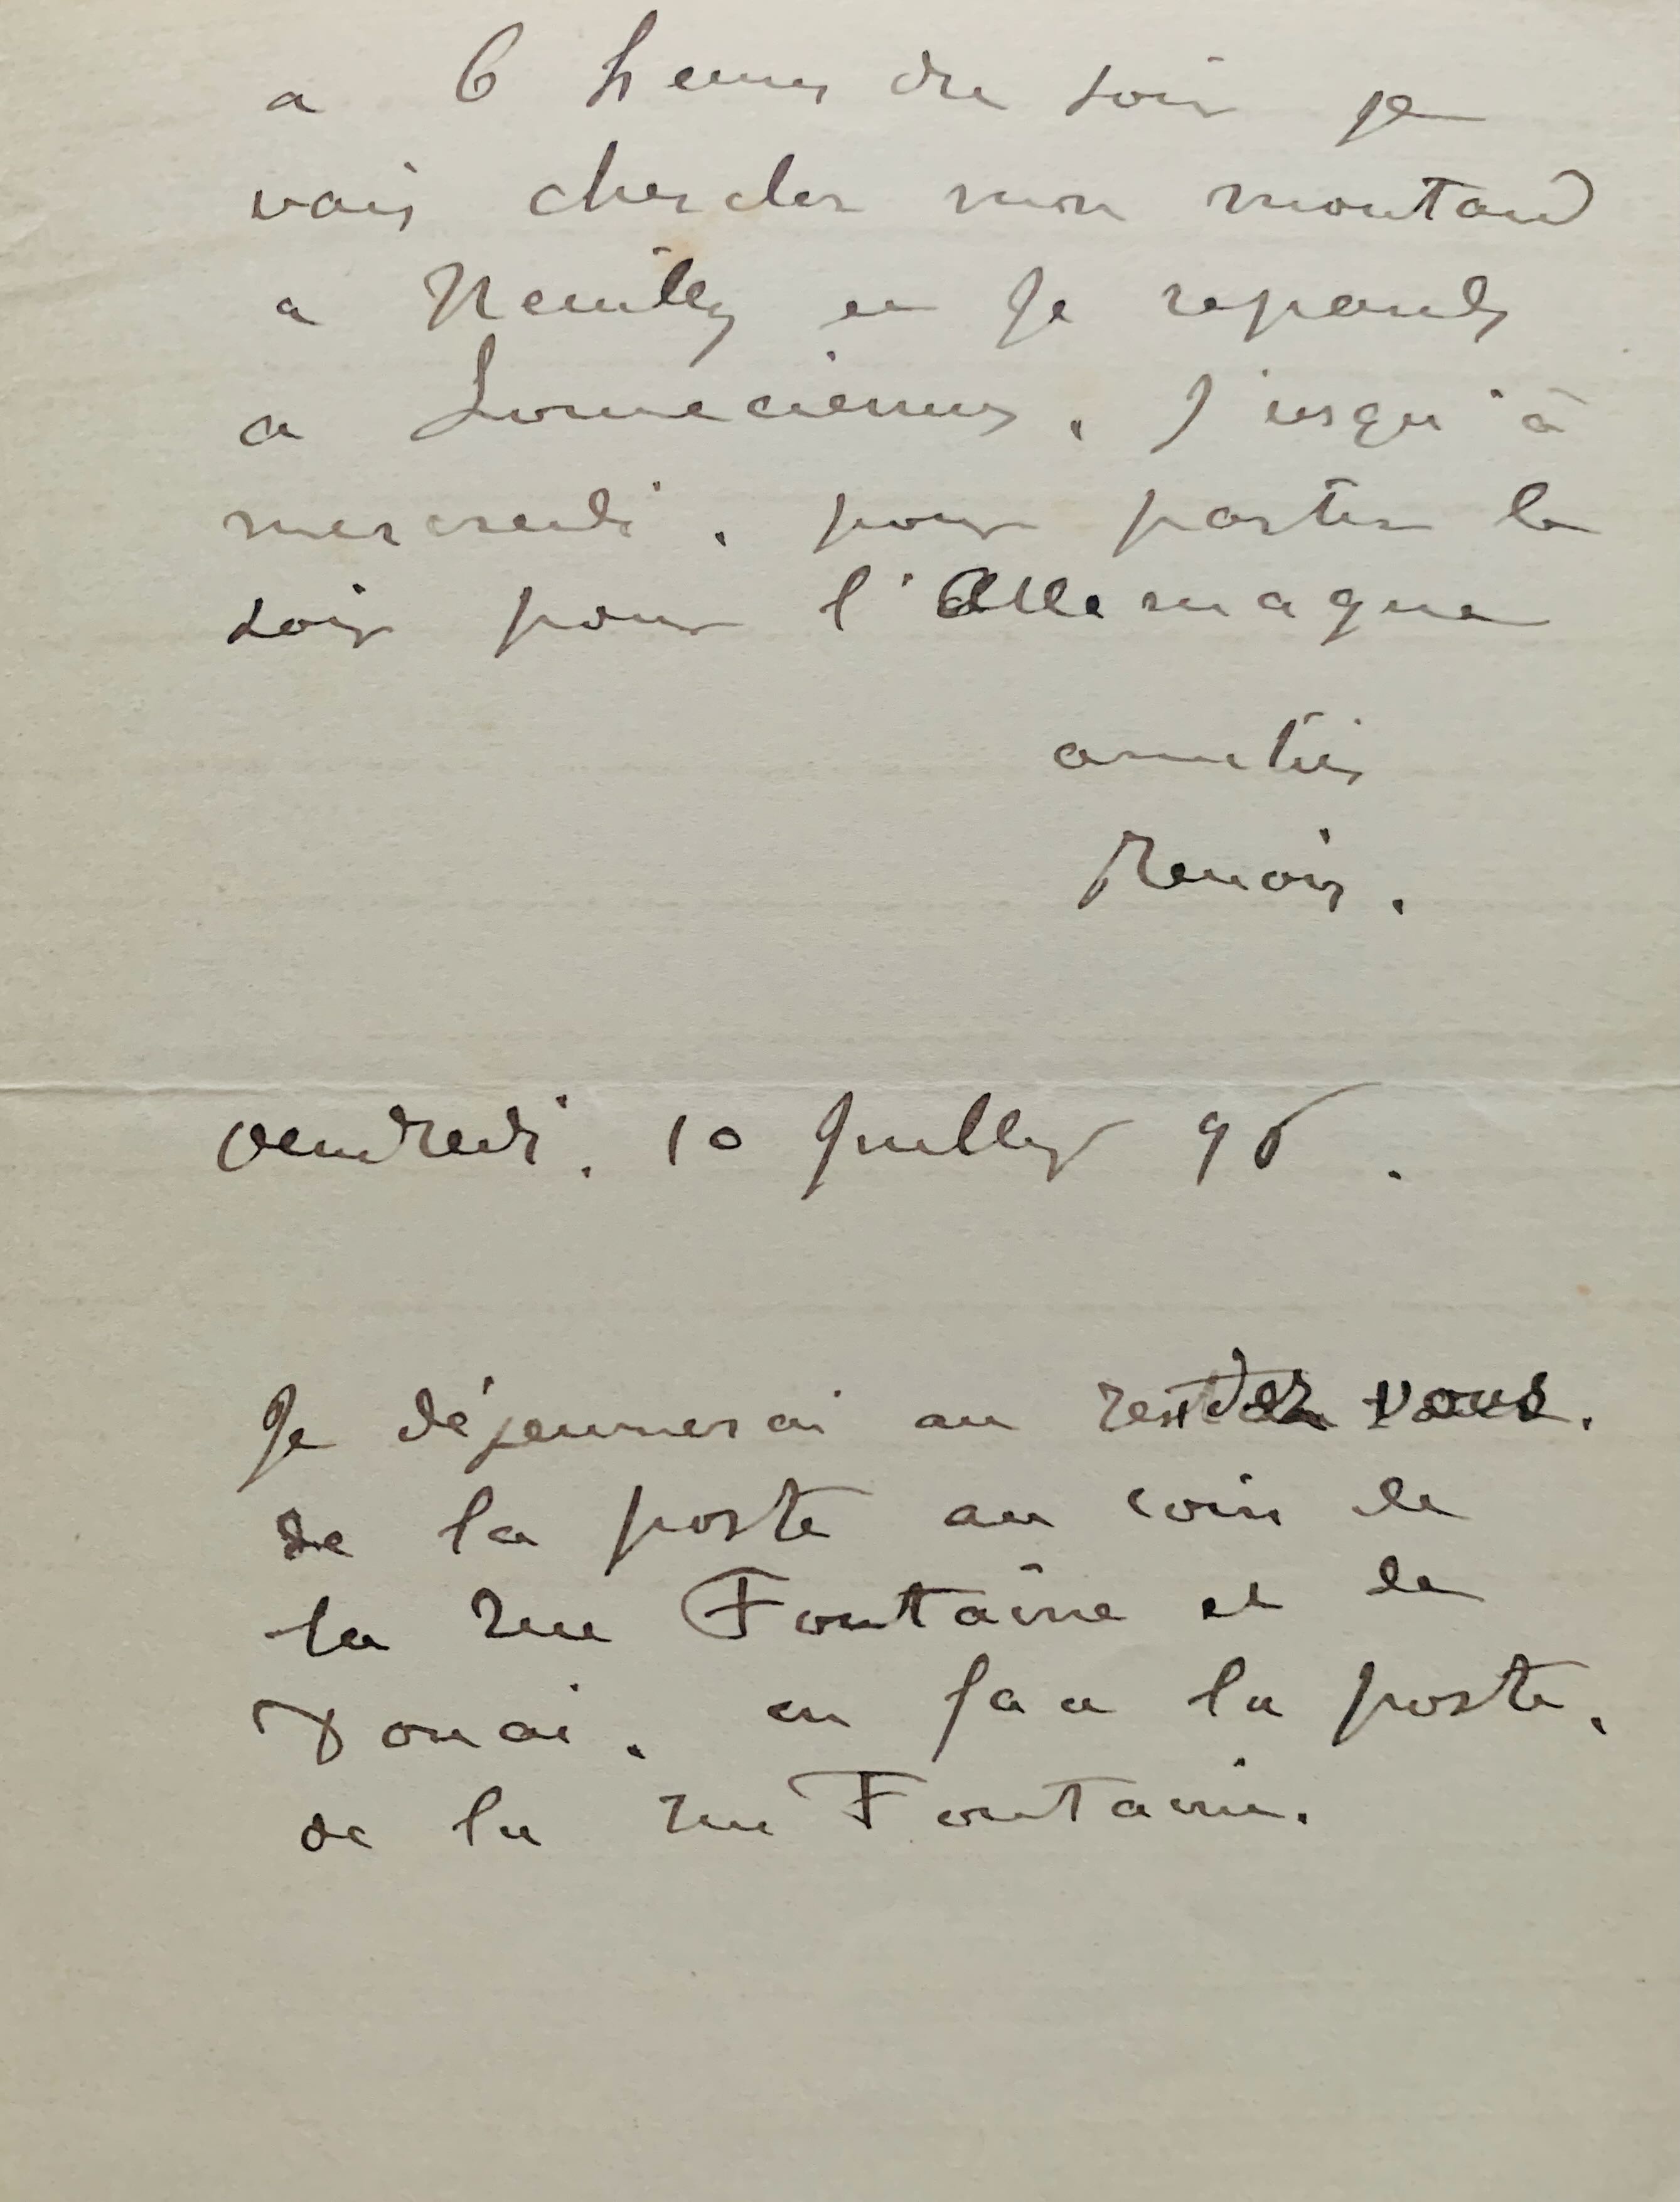 a 6 heures du soir je
vais chercher mon moutard
a Neuilly et je repards
a Louveciennes. Jusqu'à
mercredi. pour partir le
soir pour l'Allemagne
amitiés
Renoir.
vendredi. 10 Juillet 96.
Je déjeunerai au rendez vous.
de la poste au coin de
la rue Fontaine et de
Douai. en face la poste.
de la rue Fontaine.